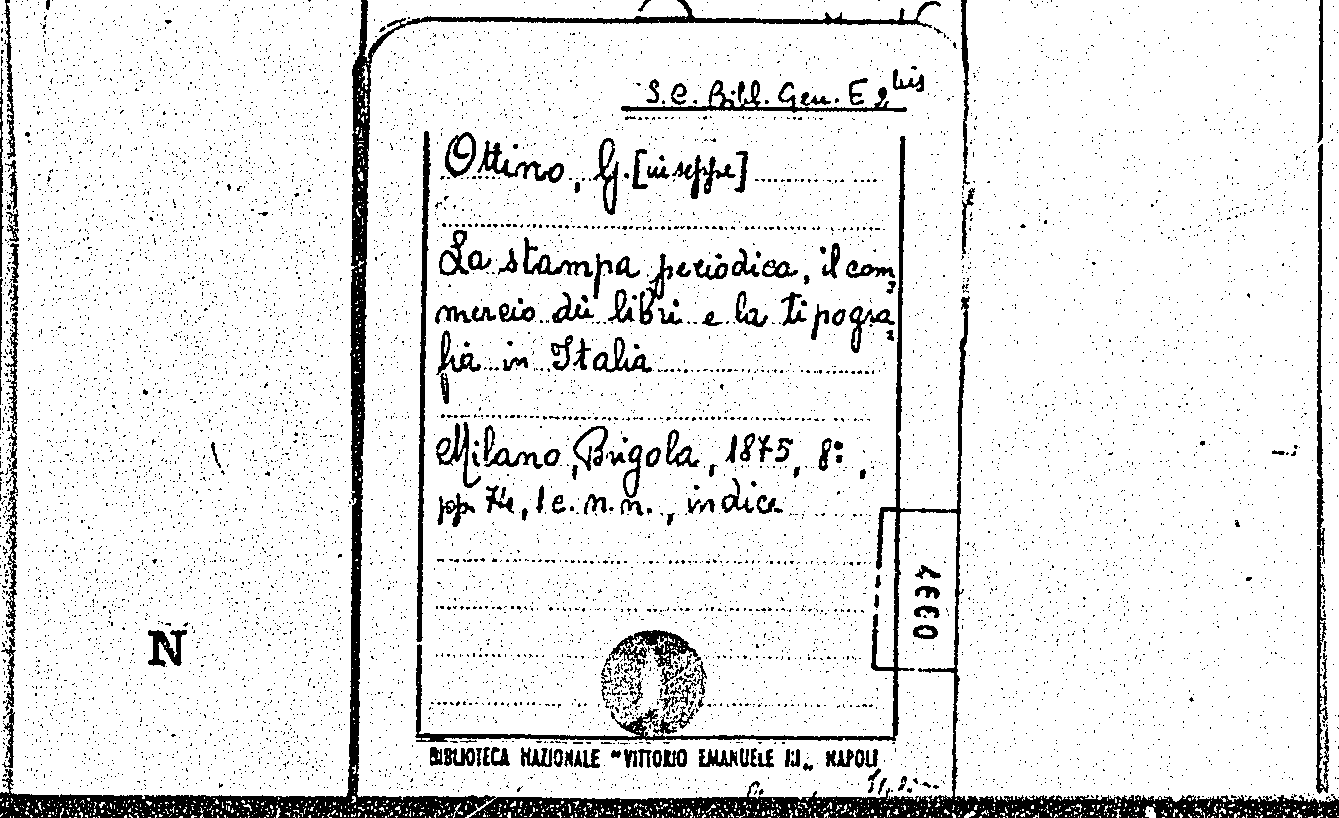 S.C. Bibl. Gen. E 2 bis
Ottino, G.[iuseppe]
La stampa periodica, il com=
mercio dei libri e la tipogra=
fia in Italia
Milano, Brigola, 1875, 8°,
pp. 74, 1 c. n. n., indice
4660
N
BIBLIOTECA NAZIONALE "VITTORIO EMANUELE III„ NAPOLI